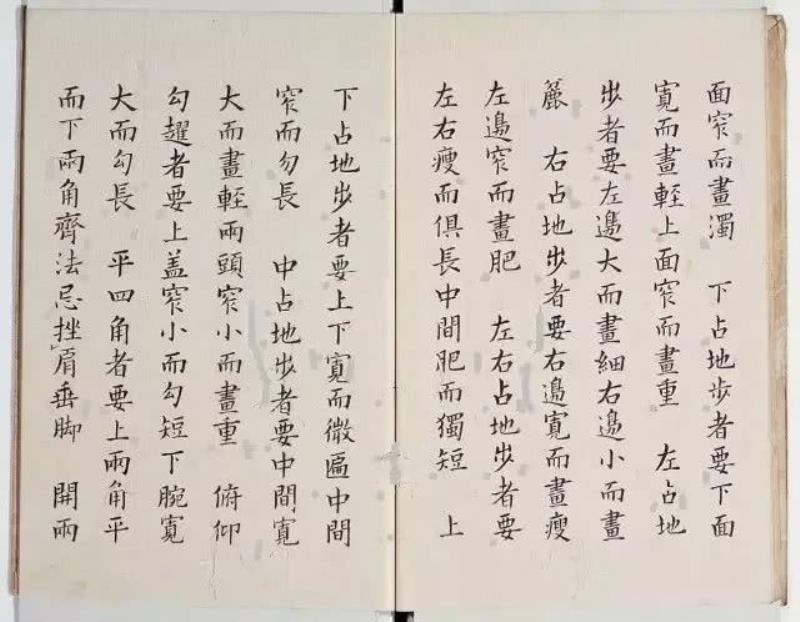 面窄而畫濁　下占地步者要下面
寬而畫輊上面窄而畫重　左占地
步者要左邊大而畫細右邊小而畫
麄　右占地步者要右邊寬而畫瘦
左邊窄而畫肥　左右占地步者要
左右瘦而俱長中間肥而獨短　上
下占地步者要上下寬而微匾中間
窄而勿長　中占地步者要中間寬
大而畫輊兩頭窄小而畫重　俯仰
勾趯者要上盖窄小而勾短下腕寬
大而勾長　平四角者要上兩角平
而下兩角齊法忌挫肩垂脚　開兩